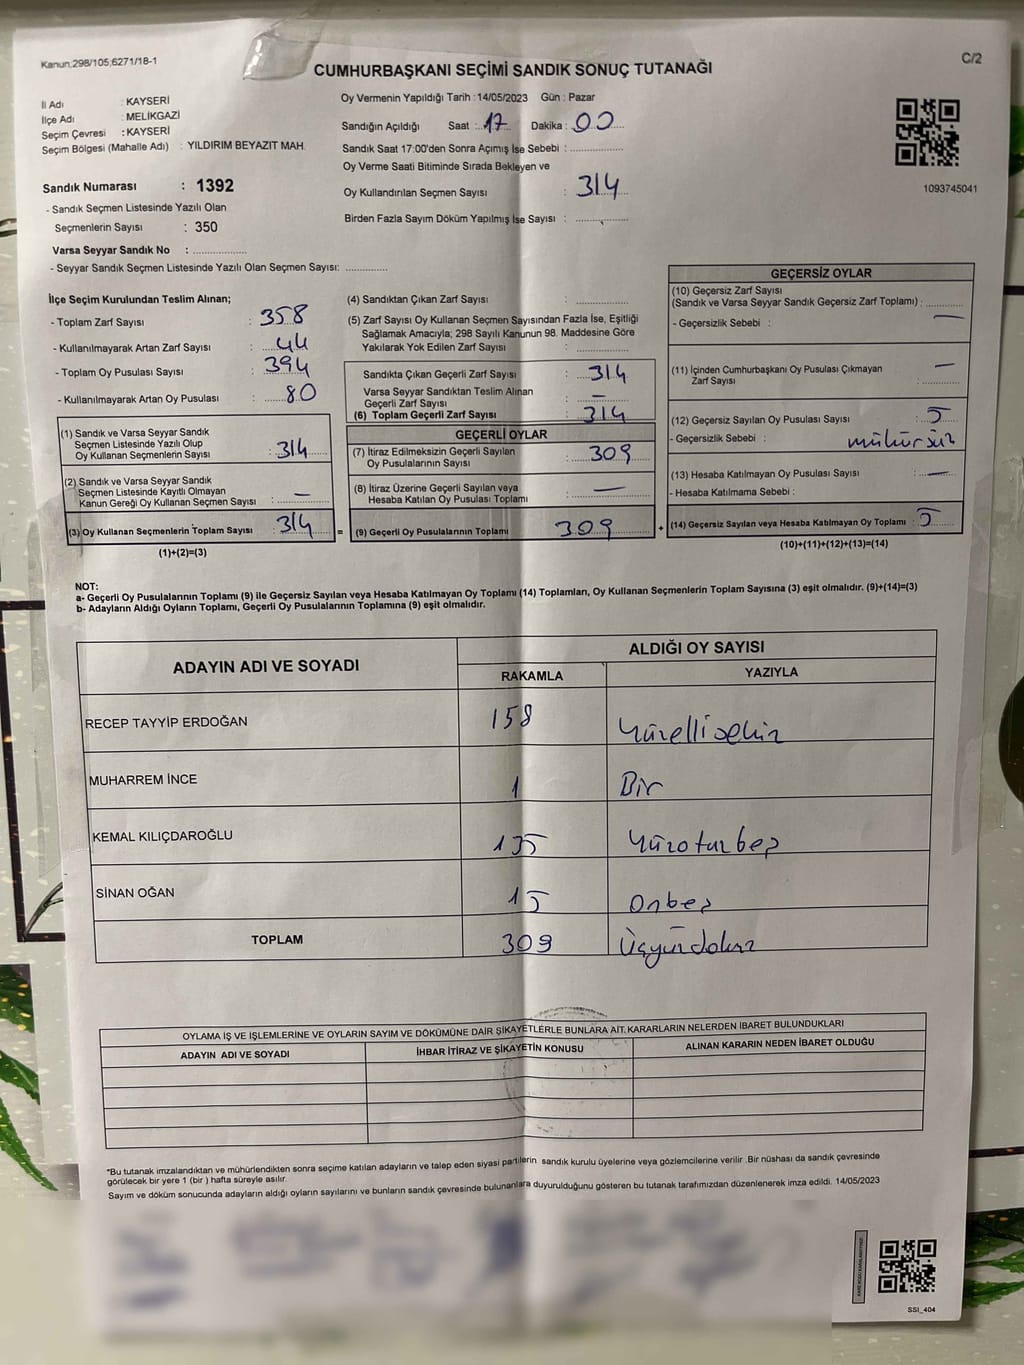 Kanun;298/105;6271/18-1
C/2
CUMHURBAŞKANI SEÇİMİ SANDIK SONUÇ TUTANAĞI
İl Adı : KAYSERİ
İlçe Adı : MELİKGAZİ
Seçim Çevresi : KAYSERİ
Seçim Bölgesi (Mahalle Adı) : YILDIRIM BEYAZIT MAH.
Sandık Numarası : 1392
- Sandık Seçmen Listesinde Yazılı Olan
Seçmenlerin Sayısı : 350
Varsa Seyyar Sandık No : ..............
- Seyyar Sandık Seçmen Listesinde Yazılı Olan Seçmen Sayısı: ............
Oy Vermenin Yapıldığı Tarih : 14/05/2023 Gün : Pazar
Sandığın Açıldığı Saat : 17 Dakika : 00
Sandık Saat 17:00'den Sonra Açımış İse Sebebi : ..............
Oy Verme Saati Bitiminde Sırada Bekleyen ve
Oy Kullandırılan Seçmen Sayısı : 314
Birden Fazla Sayım Döküm Yapılmış İse Sayısı : ..............
1093745041
İlçe Seçim Kurulundan Teslim Alınan;
- Toplam Zarf Sayısı : 358
- Kullanılmayarak Artan Zarf Sayısı : 44
- Toplam Oy Pusulası Sayısı : 394
- Kullanılmayarak Artan Oy Pusulası : 80
(1) Sandık ve Varsa Seyyar Sandık
Seçmen Listesinde Yazılı Olup
Oy Kullanan Seçmenlerin Sayısı : 314
(2) Sandık ve Varsa Seyyar Sandık
Seçmen Listesinde Kayıtlı Olmayan
Kanun Gereği Oy Kullanan Seçmen Sayısı : —
(3) Oy Kullanan Seçmenlerin Toplam Sayısı : 314
(1)+(2)=(3)
(4) Sandıktan Çıkan Zarf Sayısı : ..............
(5) Zarf Sayısı Oy Kullanan Seçmen Sayısından Fazla İse, Eşitliği
Sağlamak Amacıyla; 298 Sayılı Kanunun 98. Maddesine Göre
Yakılarak Yok Edilen Zarf Sayısı : ..............
Sandıkta Çıkan Geçerli Zarf Sayısı : 314
Varsa Seyyar Sandıktan Teslim Alınan
Geçerli Zarf Sayısı : —
(6) Toplam Geçerli Zarf Sayısı : 314
GEÇERLİ OYLAR
(7) İtiraz Edilmeksizin Geçerli Sayılan
Oy Pusulalarının Sayısı : 309
(8) İtiraz Üzerine Geçerli Sayılan veya
Hesaba Katılan Oy Pusulası Toplamı : —
= (9) Geçerli Oy Pusulalarının Toplamı 309 +
GEÇERSİZ OYLAR
(10) Geçersiz Zarf Sayısı
(Sandık ve Varsa Seyyar Sandık Geçersiz Zarf Toplamı) : ..........
- Geçersizlik Sebebi : —
(11) İçinden Cumhurbaşkanı Oy Pusulası Çıkmayan —
Zarf Sayısı : ..........
(12) Geçersiz Sayılan Oy Pusulası Sayısı : 5
- Geçersizlik Sebebi : mühürsüz
(13) Hesaba Katılmayan Oy Pusulası Sayısı : —
- Hesaba Katılmama Sebebi :
(14) Geçersiz Sayılan veya Hesaba Katılmayan Oy Toplamı : 5
(10)+(11)+(12)+(13)=(14)
NOT:
a- Geçerli Oy Pusulalarının Toplamı (9) ile Geçersiz Sayılan veya Hesaba Katılmayan Oy Toplamı (14) Toplamları, Oy Kullanan Seçmenlerin Toplam Sayısına (3) eşit olmalıdır. (9)+(14)=(3)
b- Adayların Aldığı Oyların Toplamı, Geçerli Oy Pusulalarının Toplamına (9) eşit olmalıdır.
ADAYIN ADI VE SOYADI ALDIĞI OY SAYISI
RAKAMLA YAZIYLA
RECEP TAYYİP ERDOĞAN 158 Yüzellisekiz
MUHARREM İNCE 1 Bir
KEMAL KILIÇDAROĞLU 135 Yüzotuzbeş
SİNAN OĞAN 15 Onbeş
TOPLAM 309 Üçyüzdokuz
OYLAMA İŞ VE İŞLEMLERİNE VE OYLARIN SAYIM VE DÖKÜMÜNE DAİR ŞİKAYETLERLE BUNLARA AİT KARARLARIN NELERDEN İBARET BULUNDUKLARI
ADAYIN ADI VE SOYADI İHBAR İTİRAZ VE ŞİKAYETİN KONUSU ALINAN KARARIN NEDEN İBARET OLDUĞU
*Bu tutanak imzalandıktan ve mühürlendikten sonra seçime katılan adayların ve talep eden siyasi partilerin sandık kurulu üyelerine veya gözlemcilerine verilir .Bir nüshası da sandık çevresinde
görülecek bir yere 1 (bir ) hafta süreyle asılır.
Sayım ve döküm sonucunda adayların aldığı oyların sayılarını ve bunların sandık çevresinde bulunanlara duyurulduğunu gösteren bu tutanak tarafımızdan düzenlenerek imza edildi. 14/05/2023
SSİ_404